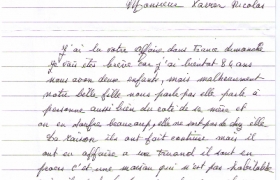 Monsieur Xavier Nicolas
J'ai lu votre affaire dans France dimanche
je vais être brève car j'ai bientot 84 ans
nous avon deux enfants, mais malheureusement
notre belle fille nous parle pas elle parle à
personne aussi bien du coté de sa mère et
on en souffre beaucoup, elle ne
La raison ils ont fait construire mais il
ont en affaire a un truand il sont en
procès c'est une maison qui n'est pas habitable